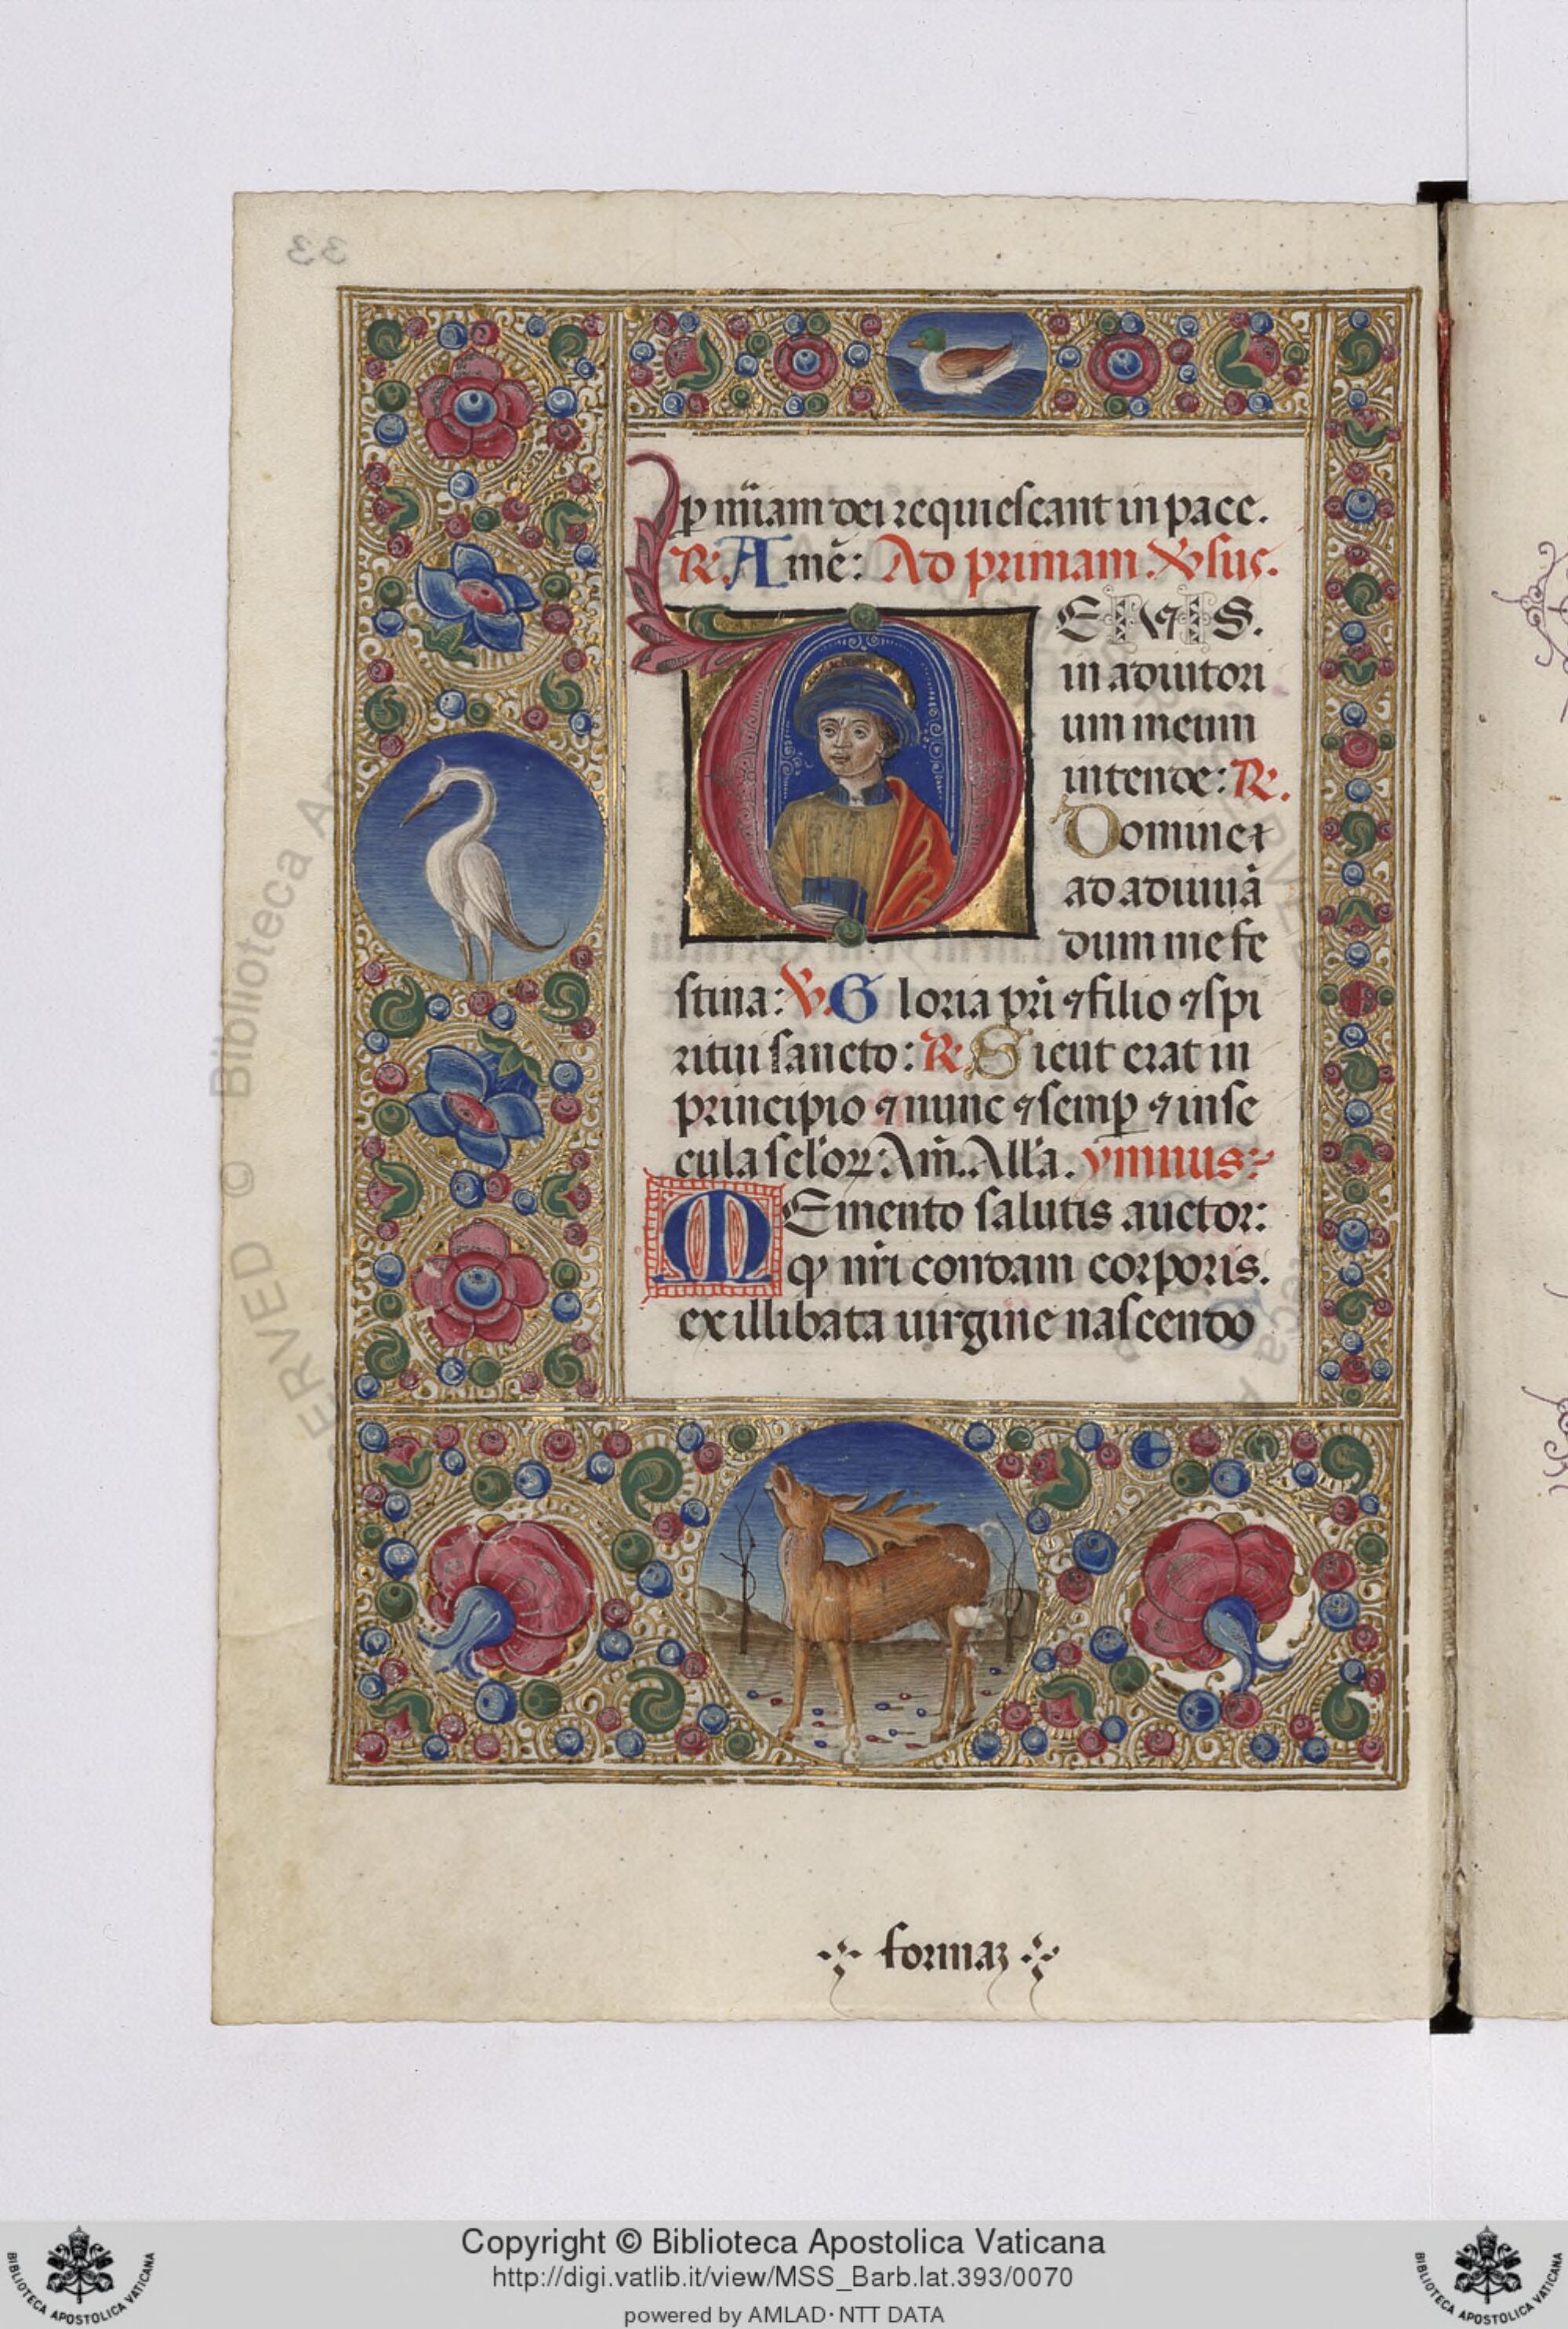 33
p mīam dei requiescant in pace.
R. Amē: Ad primam. Vsus.
DEUS.
in adiutori
um meum
intende: R.
Domine
ad adiuuā
dum me fe
stina: V. Gloria pri ⁊ filio ⁊ spi
ritui sancto: R. Sicut erat in
principio ⁊ nunc ⁊ semp ⁊ in se
cula sclorꝝ: Am̄. Alla. ymnus:
MEmento salutis auctor:
ꝙ nri condam corporis.
ex illibata uirgine nascendo
formaꝫ
Copyright © Biblioteca Apostolica Vaticana
http://digi.vatlib.it/view/MSS_Barb.lat.393/0070
powered by AMLAD·NTT DATA
BIBLIOTECA APOSTOLICA VATICANA
BIBLIOTECA APOSTOLICA VATICANA